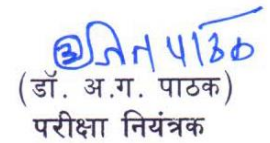 अजित पाठक
(डॉ. अ.ग. पाठक)
परीक्षा नियंत्रक